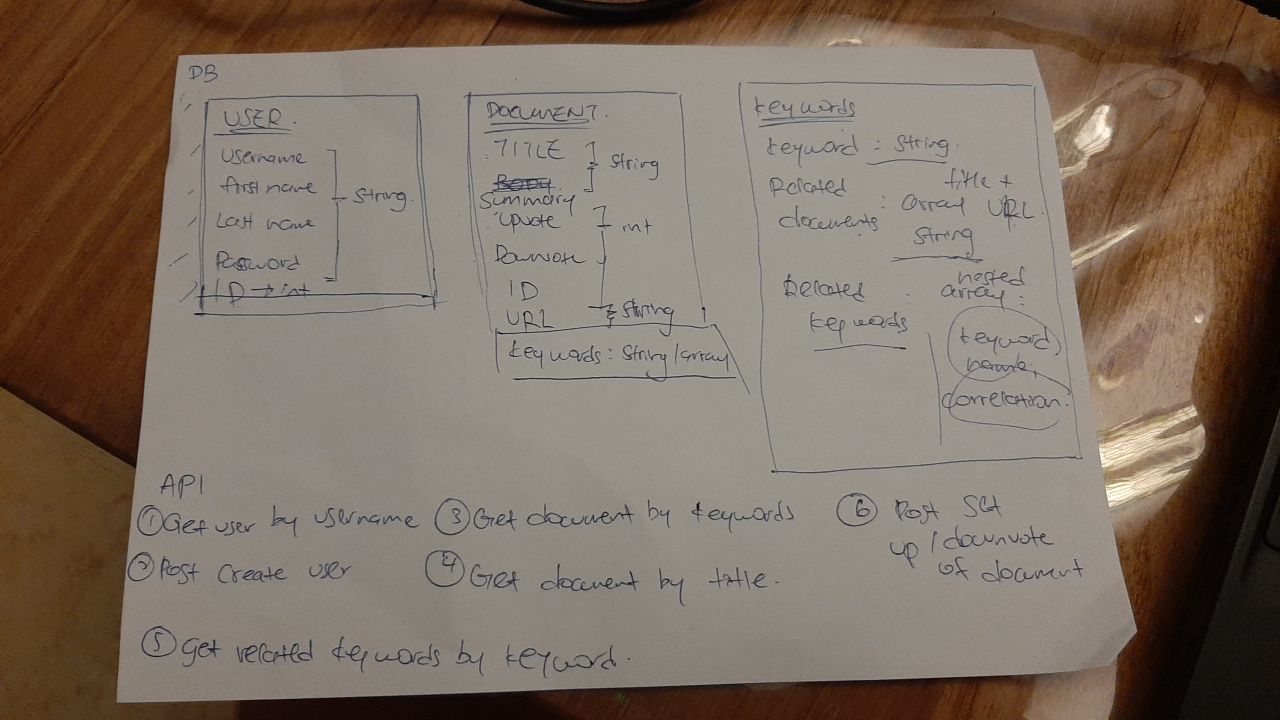 DB
USER.
Username
first name
Last name
Password
String.
ID → int
DOCUMENT.
TITLE
String
Summary
Upvote
int
Downvote
ID
URL
String
keywords : String/array
keywords
keyword : String.
Related documents : array String
title + URL.
Related keywords : nested array :
keyword name,
correlation.
API
① Get user by username
② Post create user
③ Get document by keywords
④ Get document by title.
⑤ Get related keywords by keyword.
⑥ Post Set
up / downvote
of document